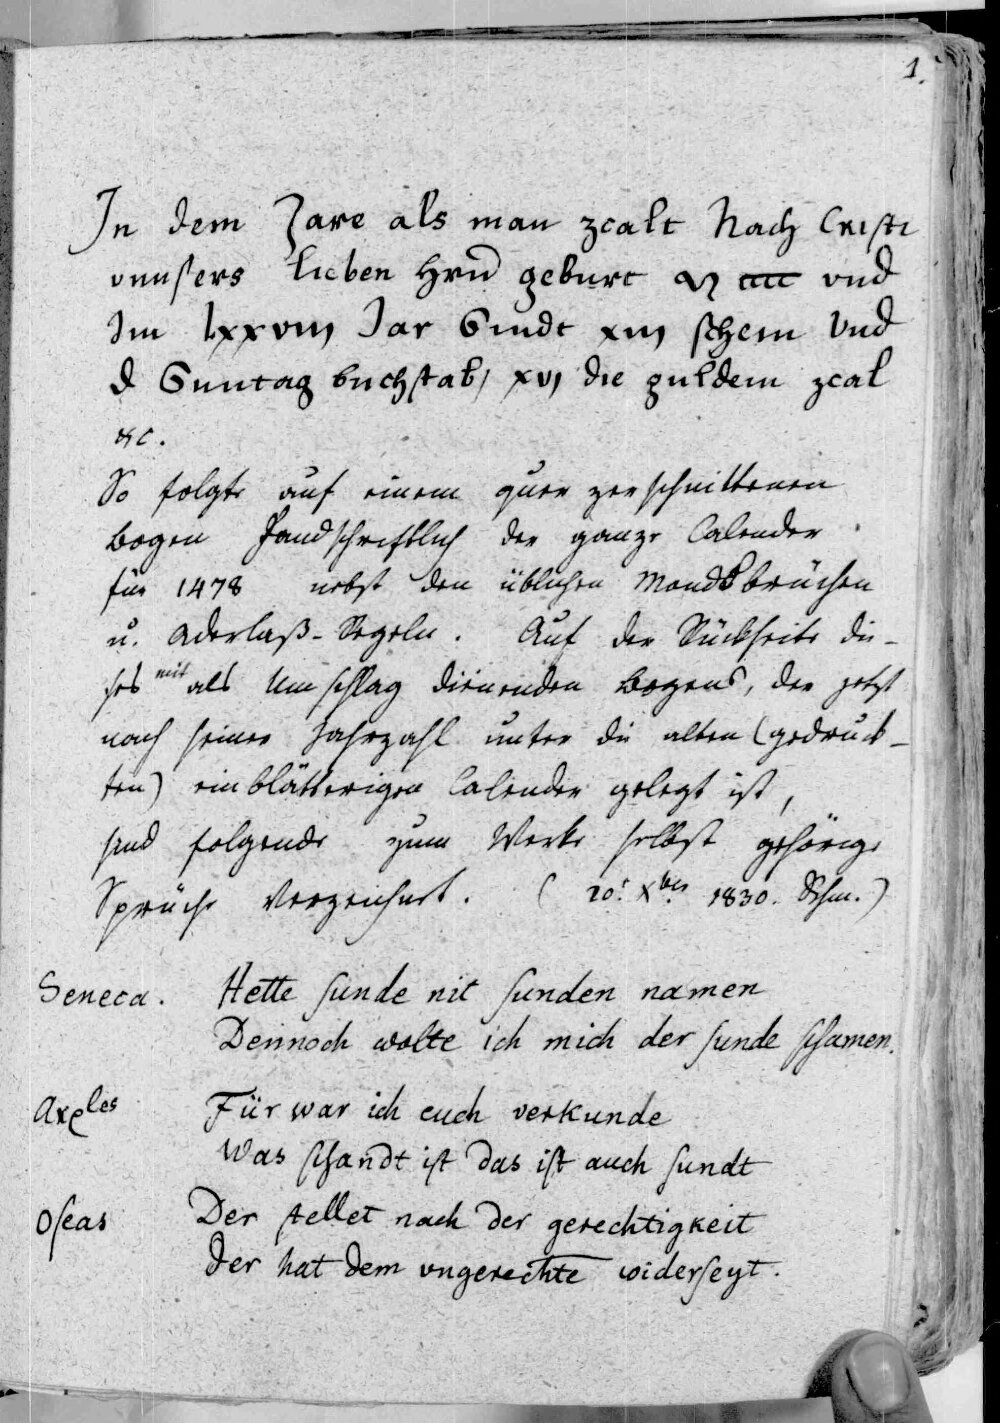 1.
In dem Jare als man zcalt Nach Cristi
vnnsers lieben Hrn geburt M cccc vnd
Im lxxviij Jar Sindt xiij schein Vnd
d Suntag buchstab, xvj die guldein zcal
&c.
So folgt auf einem quer zerschnittenen
Bogen handschriftlich der ganze Calender
für 1478 nebst den üblichen Mondsbrüchen
u. Aderlaß-Regeln. Auf der Rückseite die-
ses mit als Umschlag dienenden Bogens, der jetzt
nach seiner Jahrzahl unter die alten (gedruck-
ten) einblätterigen Calender gelegt ist,
sind folgende zum Werke selbst gehörige
Sprüche verzeichnet. (20t. Xber 1830. Schm.)
Seneca. Hette sunde nit sunden namen
Dennoch wolte ich mich der sunde schamen.
Für war ich euch verkunde
Was schandt ist das ist auch sundt
Oseas Der stellet nach der gerechtigkeit
der hat dem vngerechte widerseyt.